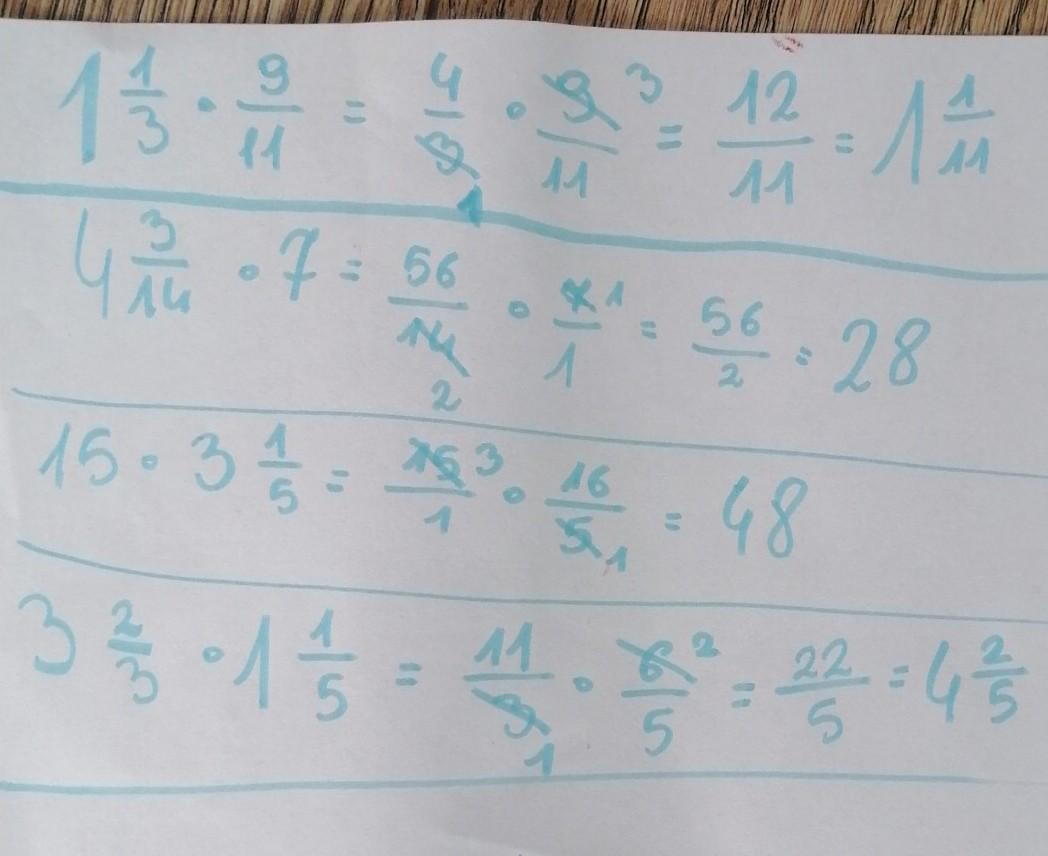 1 1/3 · 9/11 = 4/3 1 · 9/11 3 = 12/11 = 1 1/11
4 3/14 · 7 = 56/14 2 · 7/1 1 = 56/2 = 28
15 · 3 1/5 = 15/1 3 · 16/5 1 = 48
3 2/3 · 1 1/5 = 11/3 1 · 6/5 2 = 22/5 = 4 2/5